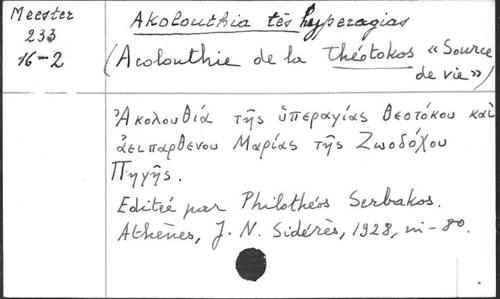 Meester
233
16-2
Akolouthia tēs hyperagias
(Acolouthie de la Théotokos «Source
de vie»)
Ἀκολουθιά τῆς ὑπεραγίας Θεοτόκου καὶ
ἀειπαρθενου Μαρίας τῆς Ζωοδόχου
Πηγῆς.
Editée par Philothéos Serbakos.
Athènes, J. N. Sidérès, 1928, in-8º.